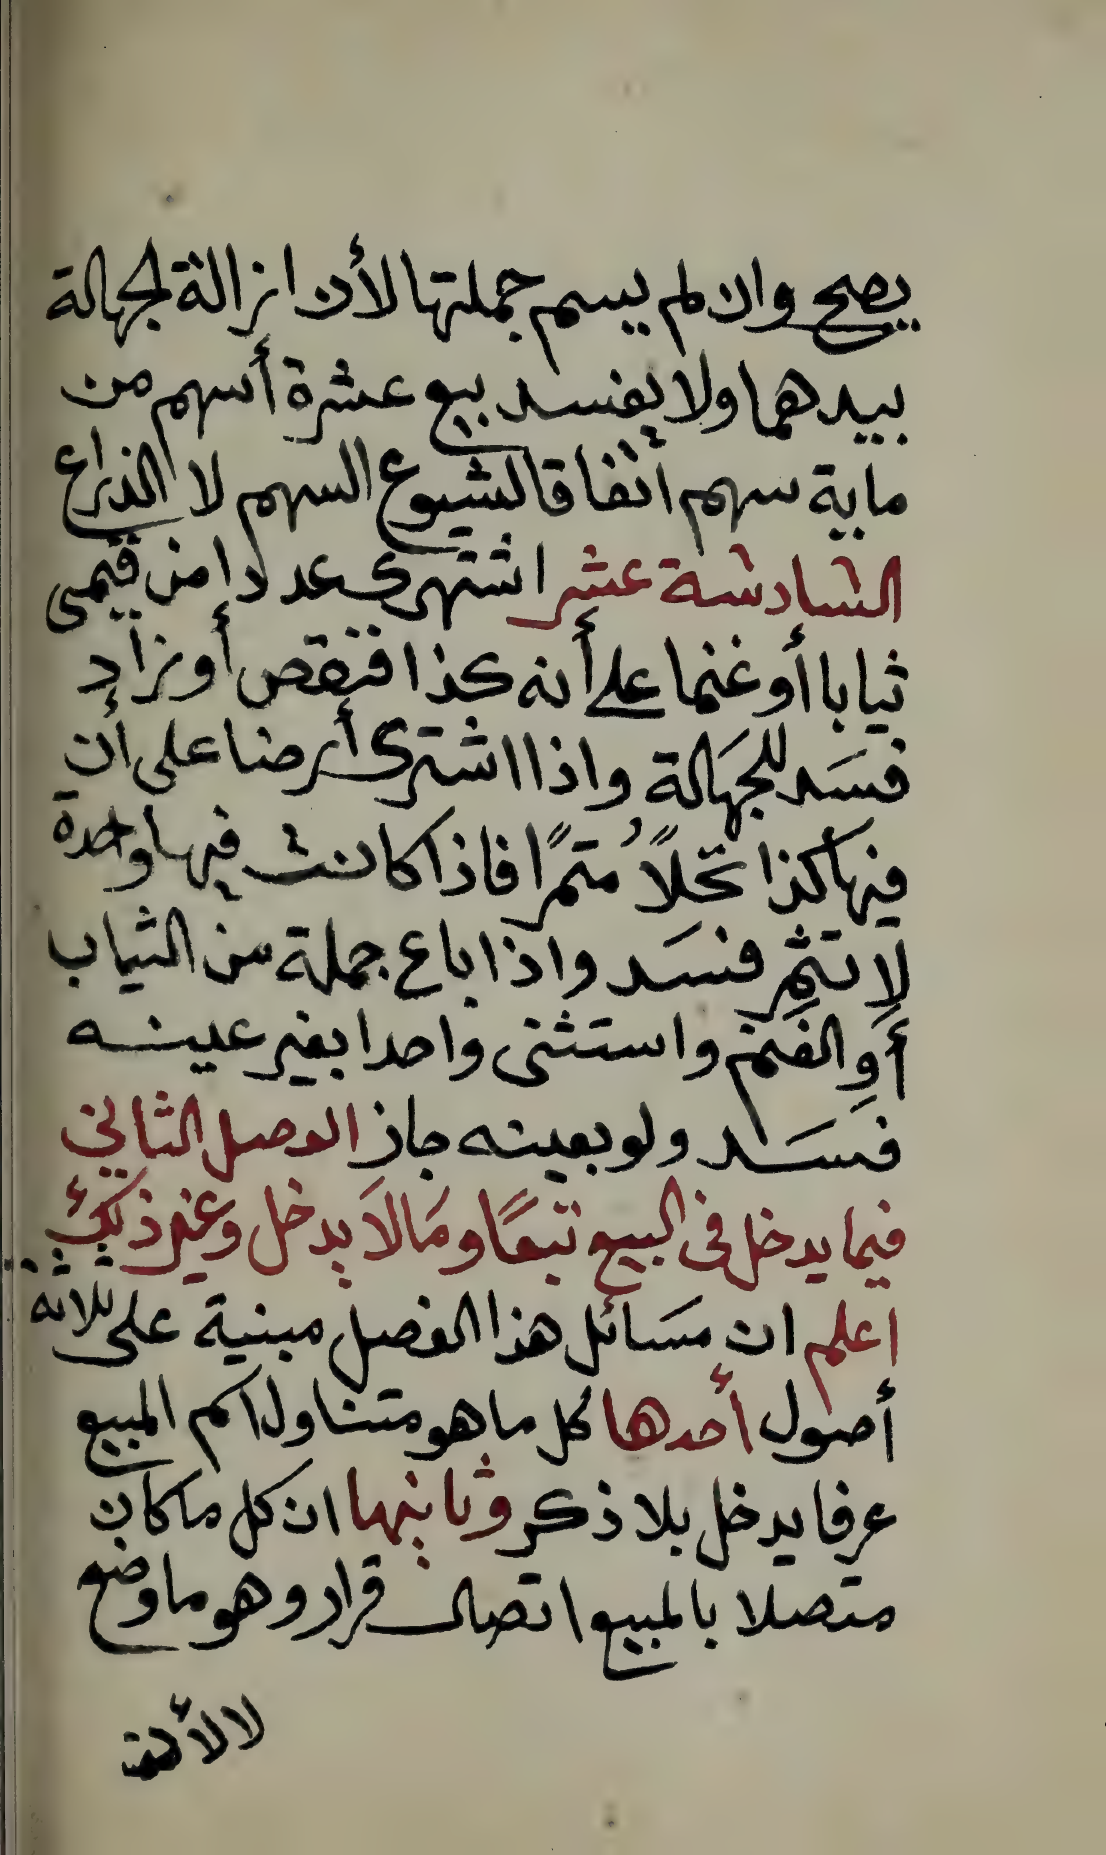 يصح وان لم يسم جملتها لأن ازالة الجهالة
بيدهما ولا يفسد بيع عشرة أسهم من
ماية سهم اتفاقا لشيوع السهم لا الذراع
السادسة عشر اشترى عددا من قيمى
ثيابا أو غنما على أنه كذا فنقص أو زاد
فسد للجهالة واذا اشترى أرضا على أن
فيها كذا نخلاً مثمرًا فاذا كانت فيها واحدة
لا تثمر فسد واذا باع جملة من الثياب
أو الغنم واستثنى واحدا بغير عينه
فسد ولو بعينه جاز الفصل الثاني
فيما يدخل فى البيع تبعًا وما لا يدخل وغير ذلك
اعلم ان مسائل هذا الفصل مبنية على ثلاثة
أصول أحدها كل ما هو متناول اسم المبيع
عرفا يدخل بلا ذكر وثانيها ان كل ما كان
متصلا بالمبيع اتصال قرار وهو ما وضع
لا لأن